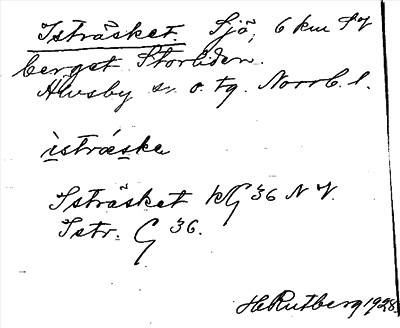 Isträsket. Sjö, 6 km SV
berget Storliden.
Älvsby sn o. tg. Norrb. l.
ìstræ̀ske
Isträsket kG 36 N V.
Istr. G 36.
H. Rutberg 1928.